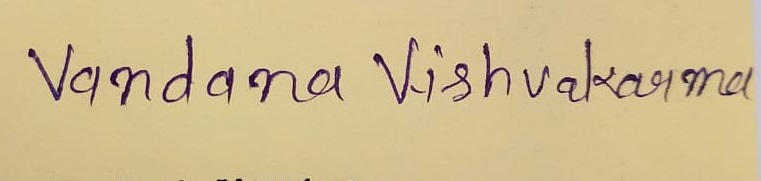 Vandana Vishvakarma